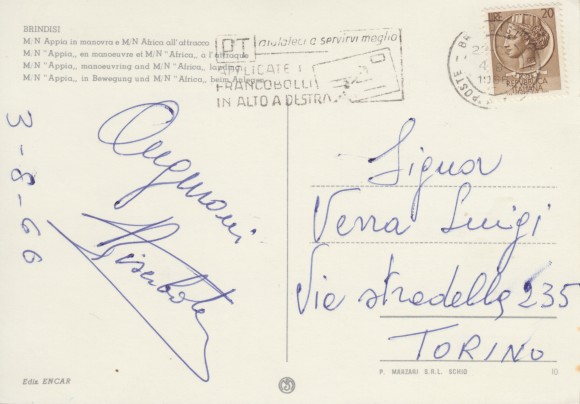 BRINDISI
M/N Appia in manovra e M/N Africa all'attracco
M/N "Appia„ en manoeuvre et M/N "Africa„ a l'attraque
M/N "Appia„ manoeuvring and M/N "Africa„ landing
M/N "Appia„ in Bewegung und M/N "Africa„ beim Anlegen
PT aiutateci a servirvi meglio
APPLICATE I
FRANCOBOLLI
IN ALTO A DESTRA
LIRE 20
POSTE
REPUBBLICA
ITALIANA
Auguroni
3-8-66
Signor
Verra Luigi
Via stradella 235
TORINO
Ediz. ENCAB
P. MANZARI S.R.L. SCHIO
10